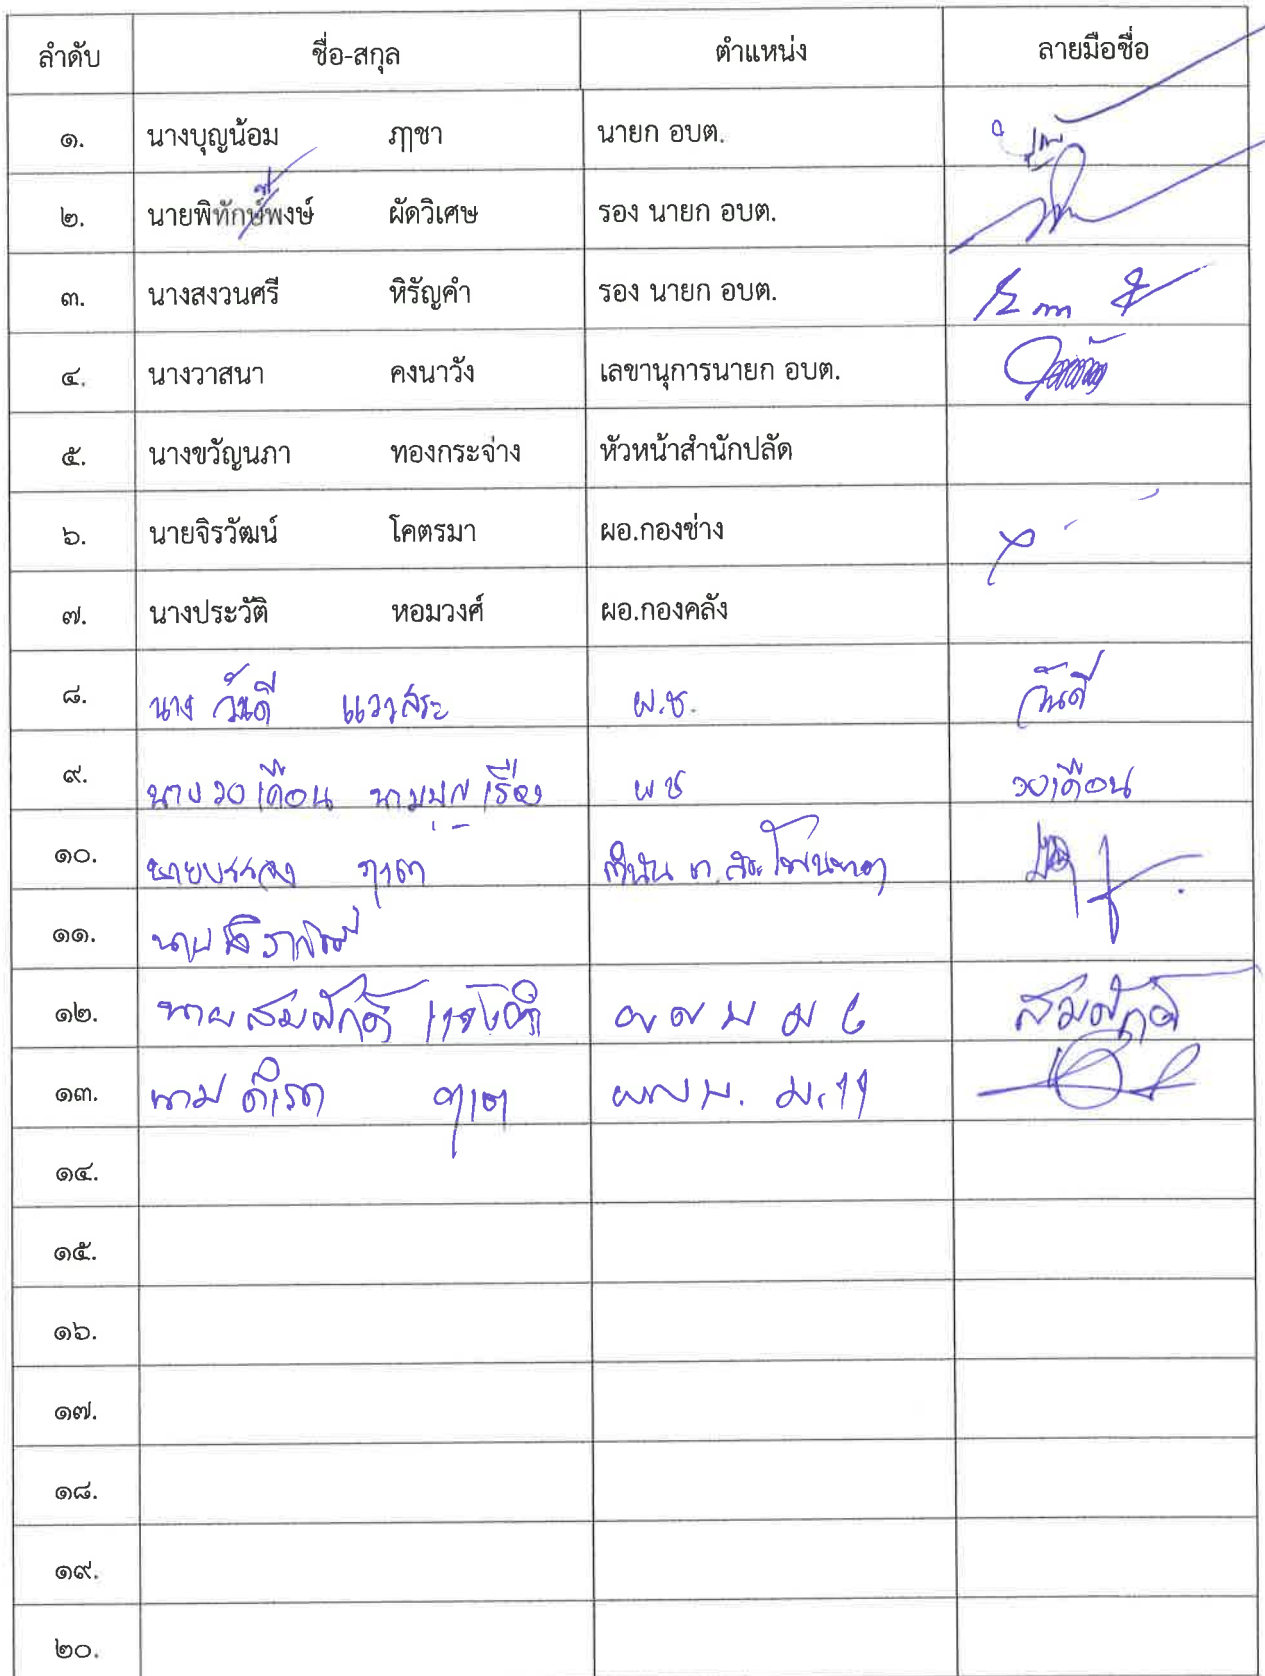 ลำดับ ชื่อ-สกุล ตำแหน่ง ลายมือชื่อ
๑. นางบุญน้อม ภุาชา นายก อบต.
๒. นายพิทักษ์พงษ์ ผัดวิเศษ รอง นายก อบต.
๓. นางสงวนศรี หิรัญคำ รอง นายก อบต.
๔. นางวาสนา คงนาวัง เลขานุการนายก อบต.
๕. นางขวัญนภา ทองกระจ่าง หัวหน้าสำนักปลัด
๖. นายจิรวัฒน์ โคตรมา ผอ.กองช่าง
๗. นางประวัติ หอมวงศ์ ผอ.กองคลัง
๘. นาง วันดี แวาสระ ผ.ช. วันดี
๙. นางวงเดือน ผช วงเดือน
๑๐. นายบรรจง กำนัน ต.สระโพนทอง
๑๑. นาย
๑๒. นาย สมศักดิ์ สมศักดิ์
๑๓. นาย ม.11
๑๔.
๑๕.
๑๖.
๑๗.
๑๘.
๑๙.
๒๐.